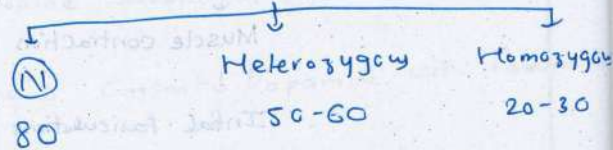 N Heterozygous Homozygous
80 50-60 20-30